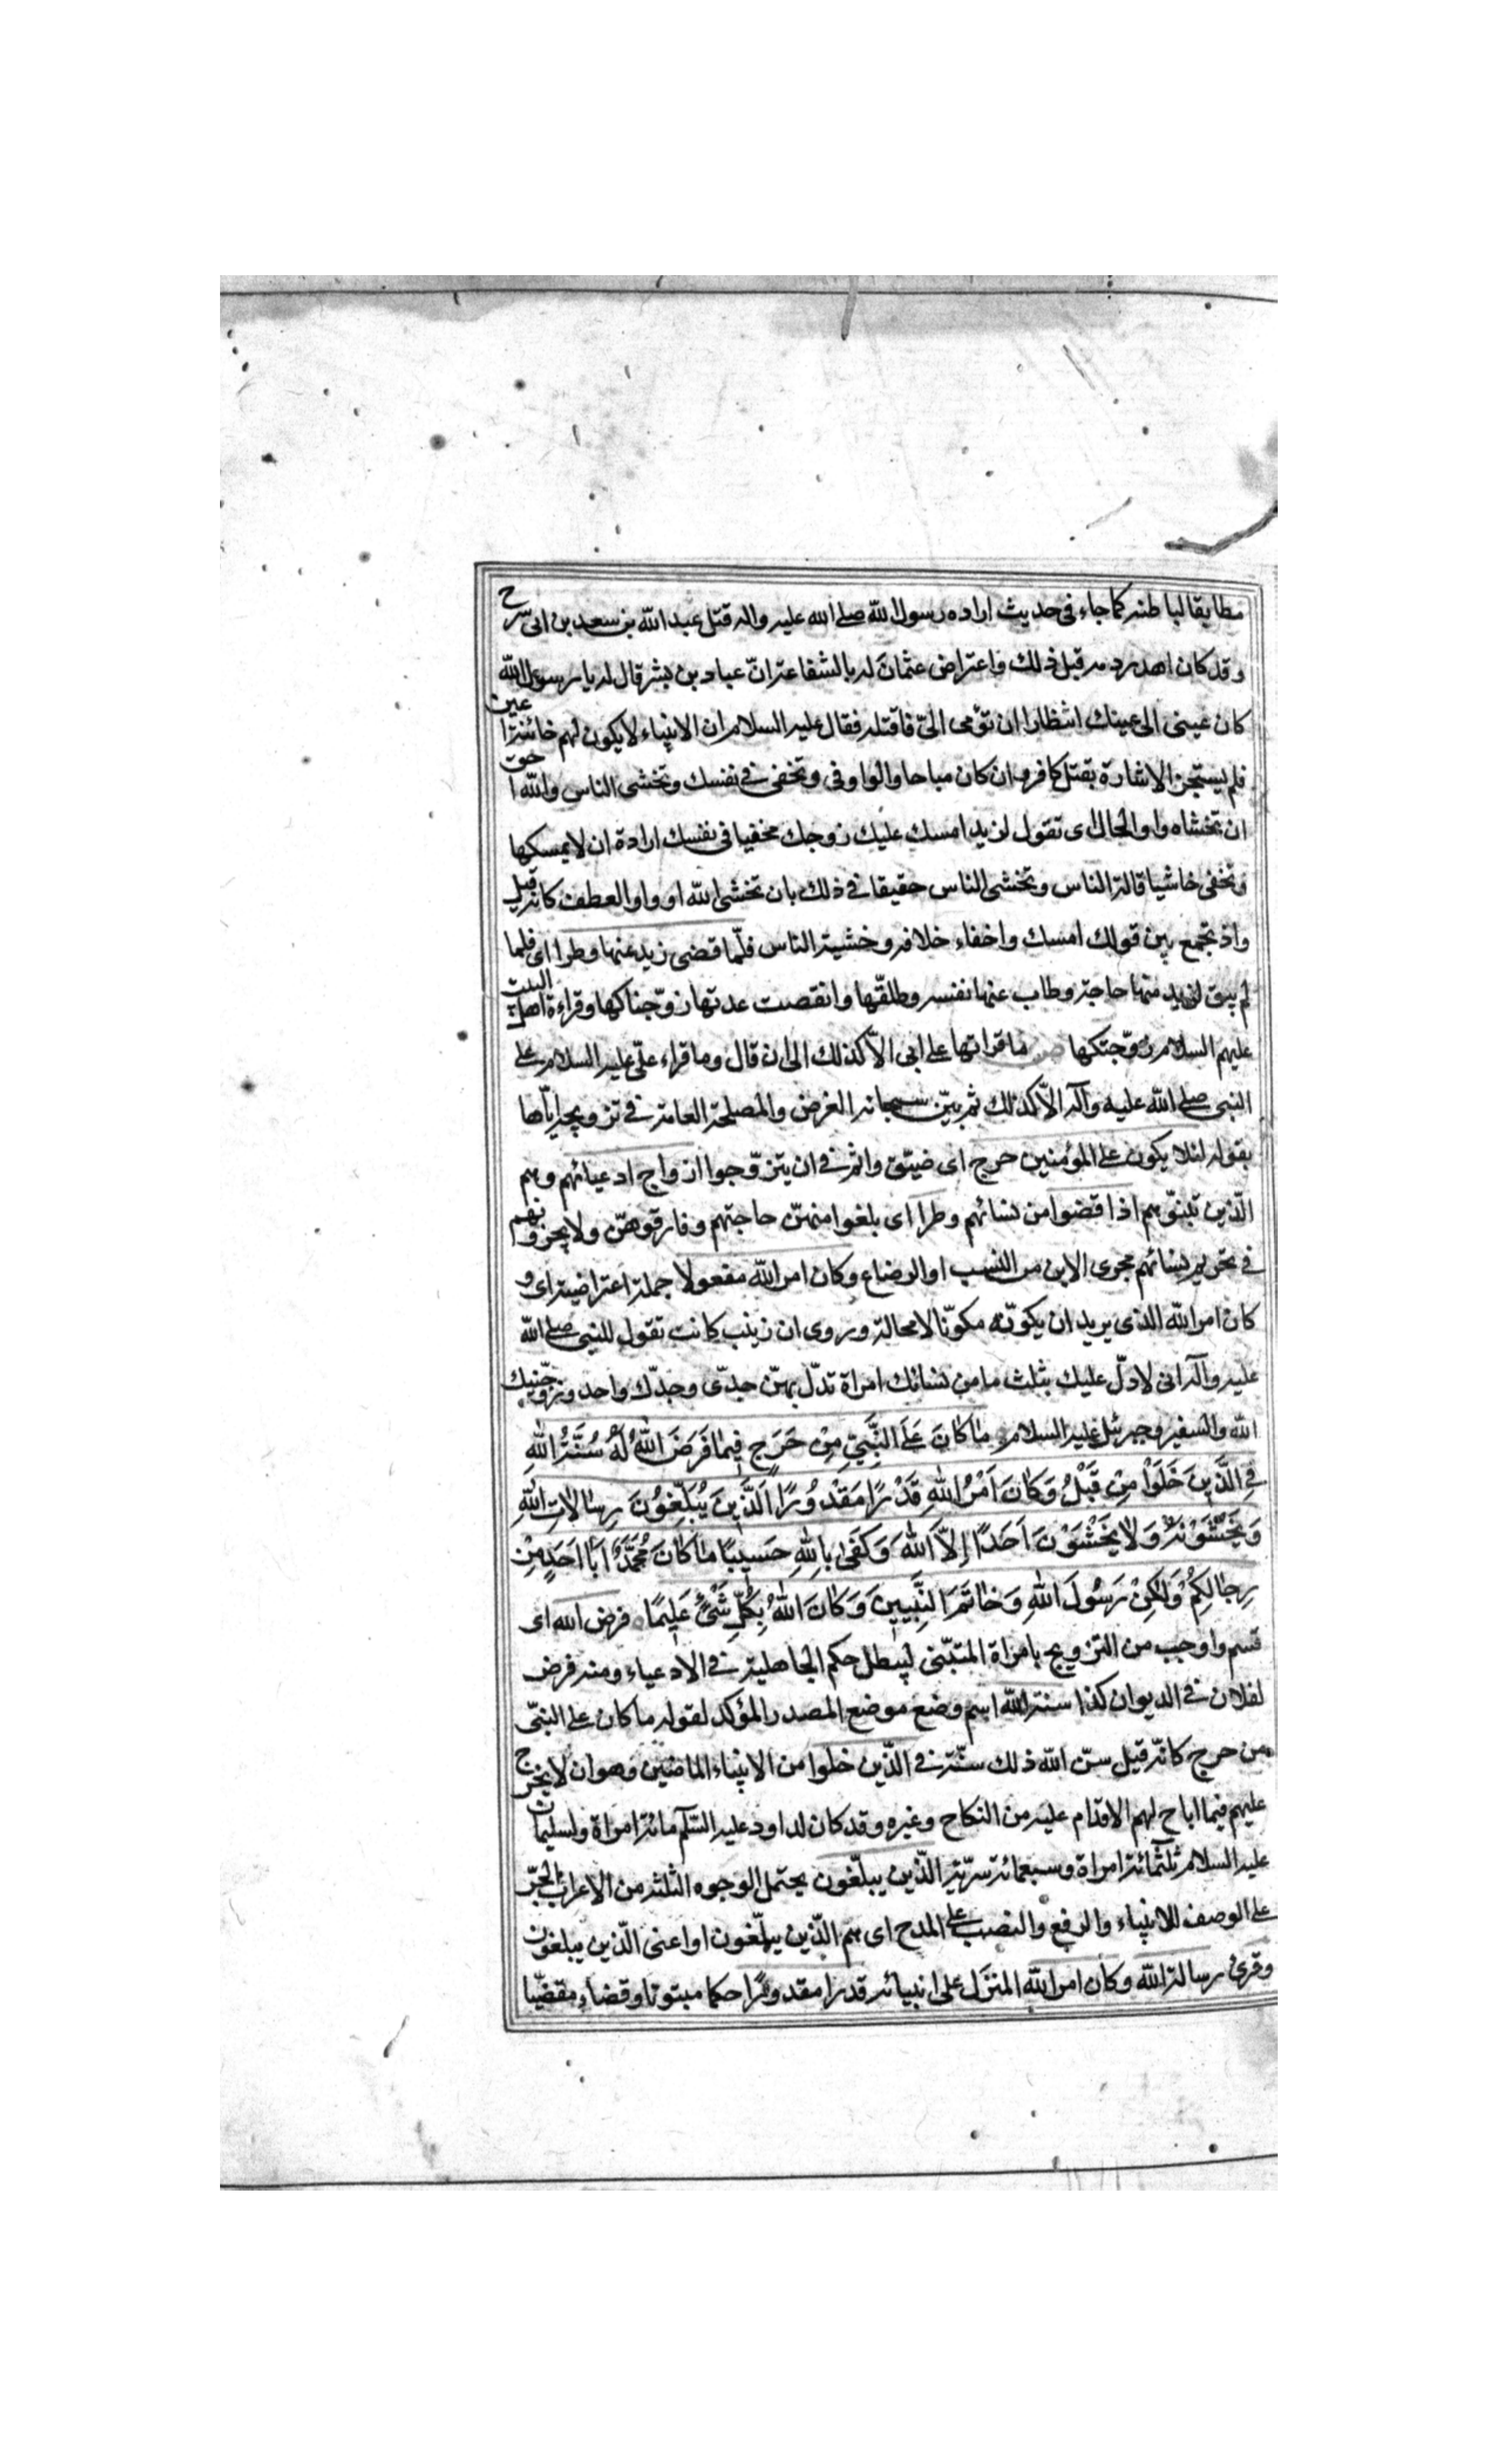 مطابقا لباطنه كما جاء في حديث اراده رسول الله صلى الله عليه واله قتل عبد الله بن سعد بن ابى سرح
وقد كان اهدر دمه قبل ذلك واعتراض عثمان له بالشفاعة ان عباد بن بشر قال له يا رسول الله
كان عينى الى عينك انتظارا ان تؤمى الىّ فاقتله فقال عليه السلام ان الانبياء لا يكون لهم خائنة اعين
فلم يستجز الاشارة بقتل كافر وان كان مباحا والواو فى وتخفى في نفسك وتخشى الناس والله احق
ان تخشاه واو الحال اى تقول لزيد امسك عليك زوجك مخفيا فى نفسك ارادة ان لا يمسكها
وتخفى خاشيا قالة الناس وتخشى الناس حقيقا في ذلك بان تخشى الله او واو العطف كانه قيل
واذ تجمع بين قولك امسك واخفاء خلافه وخشية الناس فلمّا قضى زيد منها وطرا اى فلما
لم يبق لزيد منها حاجة وطاب عنها نفسه وطلقّها وانقضت عدتها زوّجناكها وقراءة اهل البيت
عليهم السلام زوّجتكها ما قراتها على ابى الاّ كذلك الى ان قال وما قراء علىّ عليه السلام على
النبى صلى الله عليه وآله الاّ كذلك ثم بيّن سبحانه الغرض والمصلحة العامة في تزويجه اياّها
بقوله لئلا يكون على المؤمنين حرج اى ضيّق واثم في ان يتزوّجوا ازواج ادعيائهم وهم
الّذين تبنوّهم اذا قضوا من نسائهم وطرا اى بلغوا منهنّ حاجتهم وفارقوهنّ ولا يجرونهم
في تحريم نسائهم مجرى الابن من النسب او الرضاع وكان امر الله مفعولا جملة اعتراضية اى و
كان امر الله الذى يريد ان يكوّنه مكوّنا لا محالة وروى ان زينب كانت تقول للنبى صلى الله
عليه وآله انى لادلّ عليك بثلث ما من نسائك امراة تدلّ بهنّ جدّى وجدّك واحد وزوّجنيك
الله والسفير جبرئيل عليه السلام مَا كَانَ عَلَى النَّبِيِّ مِنْ حَرَجٍ فِيمَا فَرَضَ اللّٰهُ لَهُ سُنَّةَ اللّٰهِ
فِي الَّذِينَ خَلَوْا مِنْ قَبْلُ وَكَانَ اَمْرُ اللّٰهِ قَدَرًا مَقْدُورًا اَلَّذِينَ يُبَلِّغُونَ رِسَالَاتِ اللّٰهِ
وَيَخْشَوْنَهُ وَلَا يَخْشَوْنَ اَحَدًا إِلَّا اللّٰهَ وَكَفَى بِاللّٰهِ حَسِيبًا مَا كَانَ مُحَمَّدٌ اَبَا اَحَدٍ مِنْ
رِجَالِكُمْ وَلٰكِنْ رَسُولَ اللّٰهِ وَخَاتَمَ النَّبِيِينَ وَكَانَ اللّٰهُ بِكُلِّ شَيْءٍ عَلِيمًا فرض الله اى
قسم واوجب من التزويج بامراة المتبنّى ليبطل حكم الجاهلية في الادعياء ومنه فرض
لفلان في الديوان كذا سنة الله اسم وضع موضع المصدر المؤكد لقوله ما كان على النبىّ
من حرج كانّه قيل سنّ الله ذلك سنّة في الّذين خلوا من الانبياء الماضين وهو ان لا يحرج
عليهم فيما اباح لهم الاقدام عليه من النكاح وغيره وقد كان لداود عليه السّلم مائة امراة ولسليمان
عليه السلام ثلثمائة امراة وسبعمائة سرّية الّذين يبلّغون يحتمل الوجوه الثلثة من الاعراب الجرّ
على الوصف للانبياء والرفع والنصب على المدح اى هم الّذين يبلّغون او اعنى الّذين يبلغون
وقرئ رسالة الله وكان امر الله المنزل على انبيائه قدرا مقدورًا حكما مبتوتا وقضاء مقضيّا